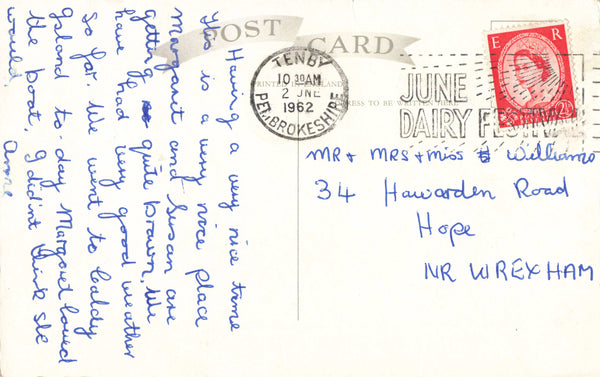 POST CARD
PRINTED IN
ADDRESS TO BE WRITTEN HERE
TENBY
10 30AM
2 JNE
1962
PEMBROKESHIRE
JUNE
DAIRY FESTIVAL
E R
2½
Having a very nice time
this is a very nice place
Margaret and Susan are
getting quite brown. We
have had very good weather
so far. We went to Caldy
Island to-day Margaret loved
the boat, I did'nt think she
would
Anne
MR + MRS + Miss Williams
34 Hawarden Road
Hope
NR WREXHAM